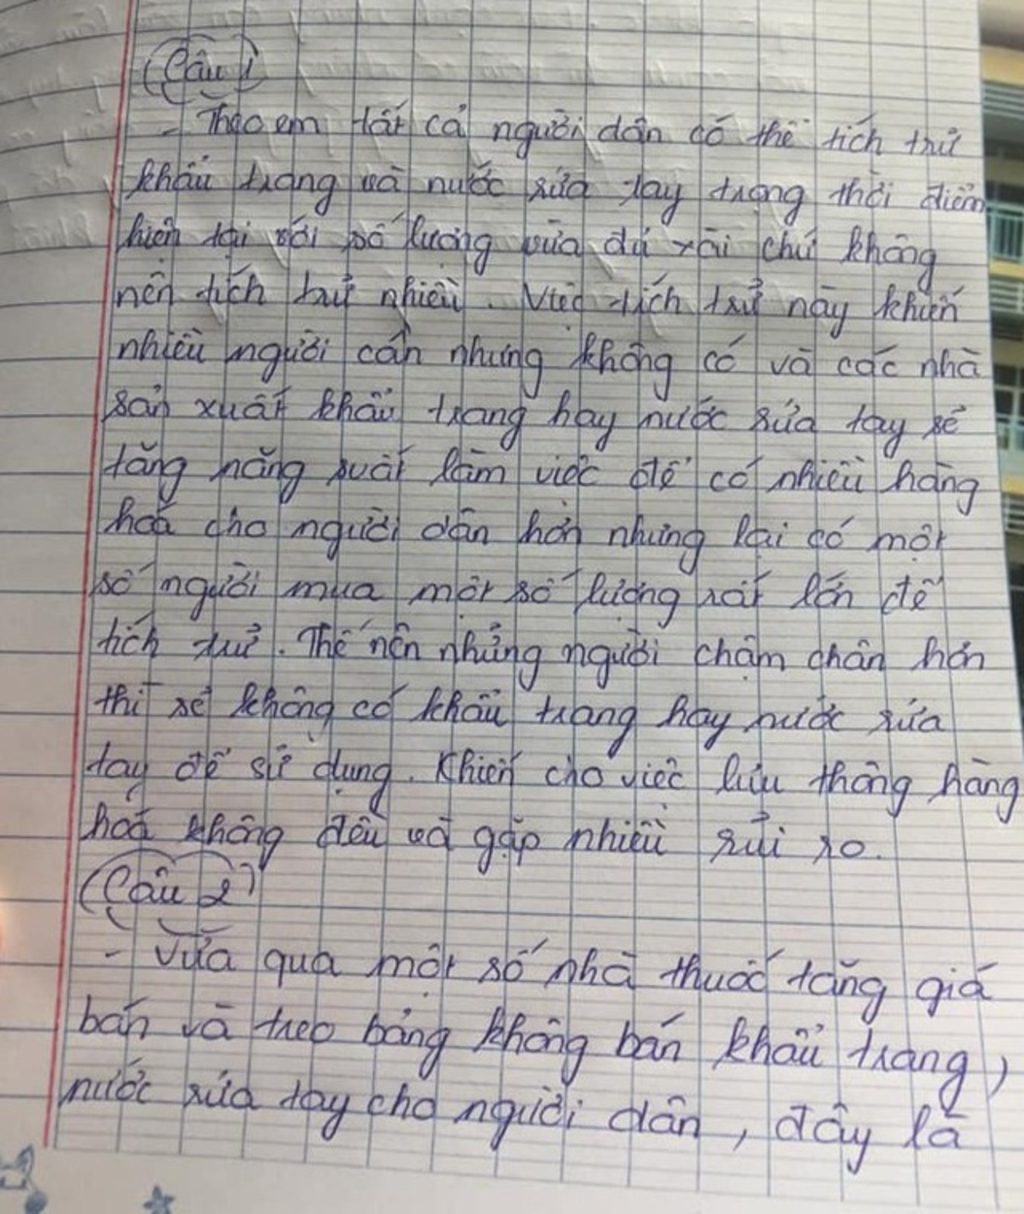 (Câu 1)
- Theo em tất cả người dân có thể tích trữ
khẩu trang và nước rửa tay trong thời điểm
hiện tại với số lượng vừa đủ xài chứ không
nên tích trữ nhiều. Việc tích trữ này khiến
nhiều người cần nhưng không có và các nhà
sản xuất khẩu trang hay nước rửa tay sẽ
tăng năng suất làm việc để có nhiều hàng
hoá cho người dân hơn nhưng lại có một
số người mua một số lượng rất lớn để
tích trữ. Thế nên những người chậm chân hơn
thì sẽ không có khẩu trang hay nước rửa
tay để sử dụng. Khiến cho việc lưu thông hàng
hoá không đều và gặp nhiều rủi ro.
(Câu 2)
- Vừa qua một số nhà thuốc tăng giá
bán và treo bảng không bán khẩu trang,
nước rửa tay cho người dân, đây là